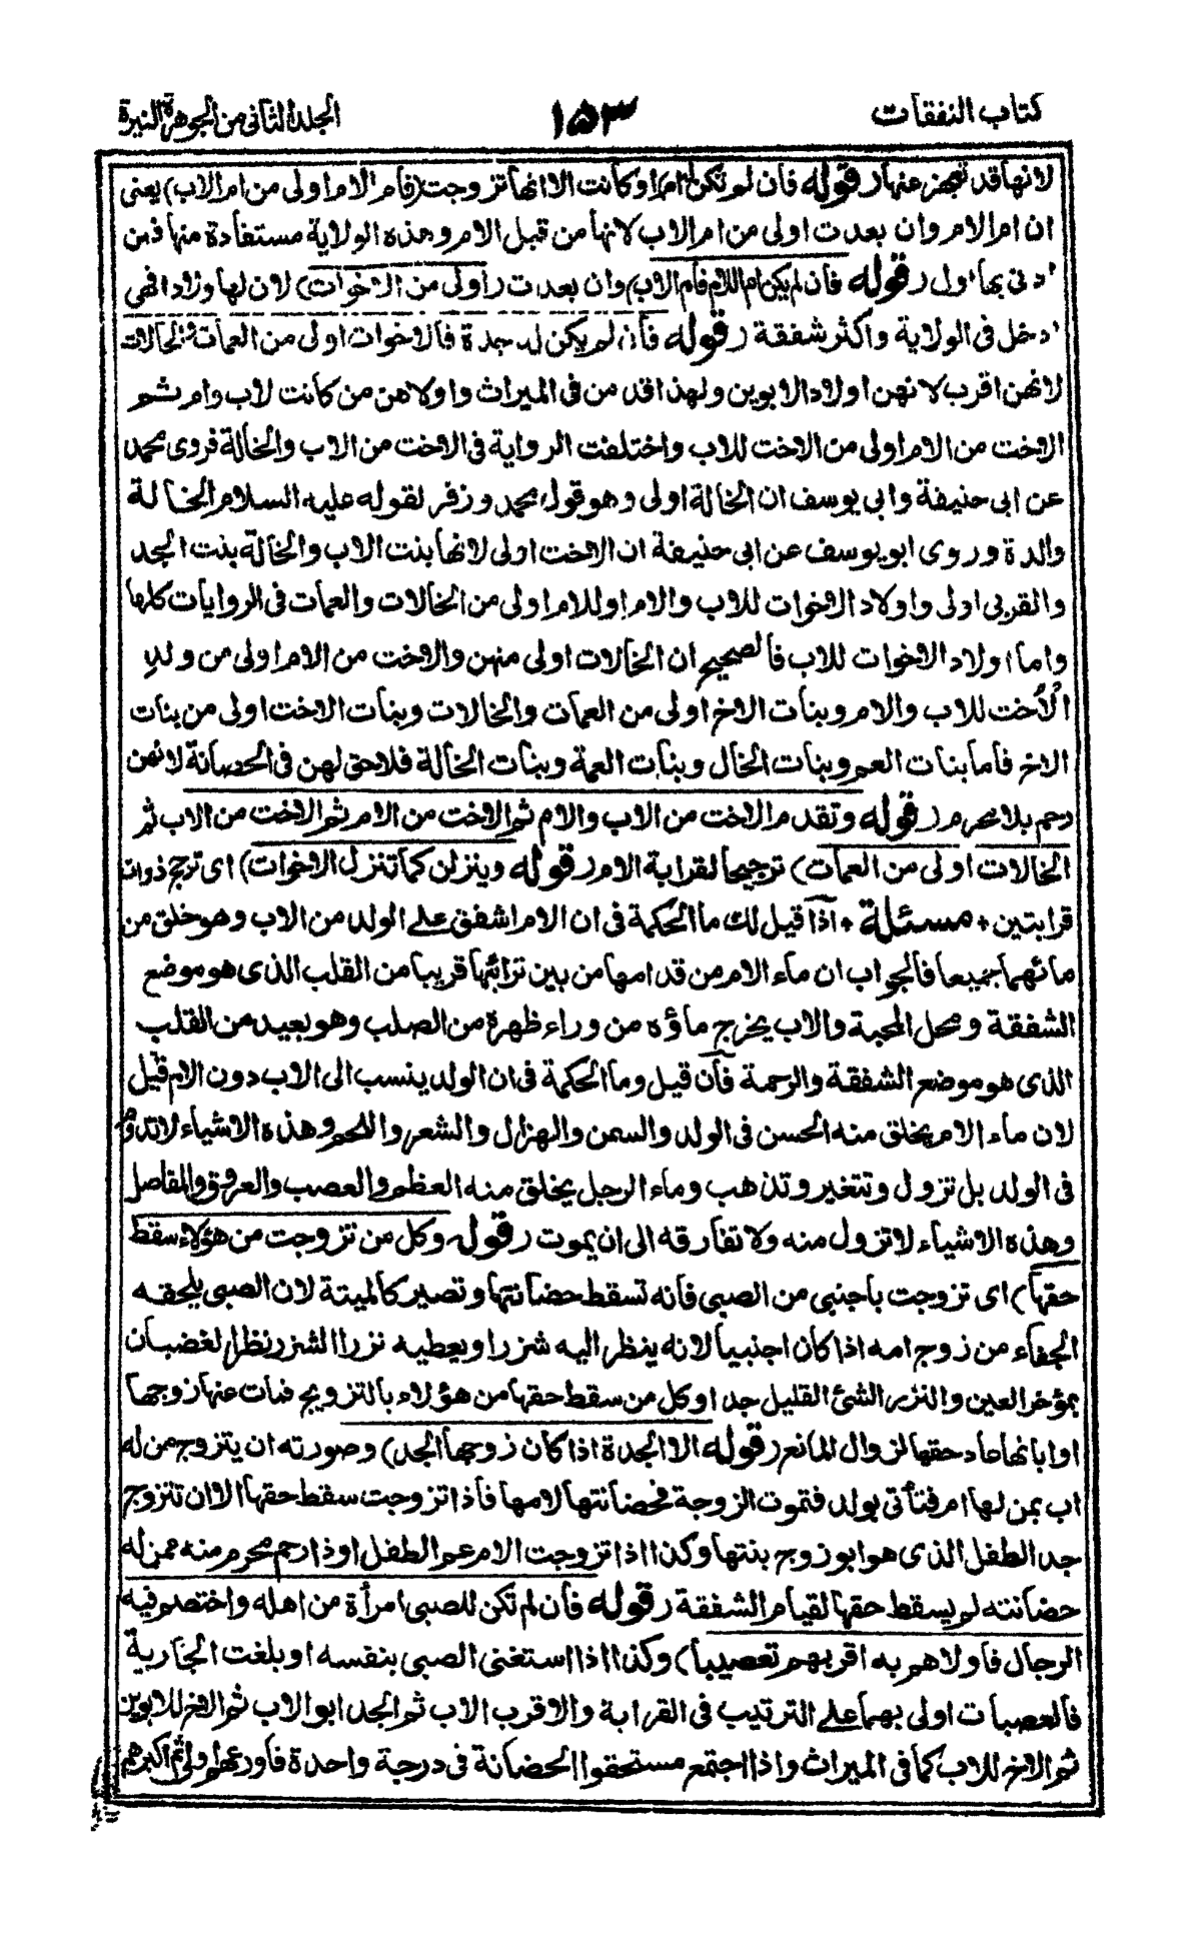 كتاب النفقات
١٥٣
الجلد الثانی من الجوهرة النيرة
لانها قد تعجز عنها (قوله فان لم تكن ام او كانت الا انها تزوجت فام الام اولى من ام الاب) يعنى
ان ام الام وان بعدت اولى من ام الاب لانها من قبل الام وهذه الولاية مستفادة منها فمن
ادنى بها اولى (قوله فان لم يكن ام الام فام الاب وان بعدت اولى من الاخوات) لان لها ولادا فهى
ادخل فى الولاية واكثر شفقة (قوله فان لم يكن له جدة فالاخوات اولى من العمات والخالات
لانهن اقرب لانهن اولاد الابوين ولهذا قد من فى الميراث واولاهن من كانت لاب وام ثم
الاخت من الام اولى من الاخت للاب واختلفت الرواية فى الاخت من الاب والخالة فروى محمد
عن ابى حنيفة وابى يوسف ان الخالة اولى وهو قول محمد وزفر لقوله عليه السلام الخالة
والدة وروى ابو يوسف عن ابى حنيفة ان الاخت اولى لانها بنت الاب والخالة بنت الجد
والقربى اولى واولاد الاخوات للاب والام او للام اولى من الخالات والعمات فى الروايات كلها
واما اولاد الاخوات للاب فالصحيح ان الخالات اولى منهن والاخت من الام اولى من ولد
الأخت للاب والام وبنات الاخ اولى من العمات والخالات وبنات الاخت اولى من بنات
الاخ فاما بنات العم وبنات الخال وبنات العمة وبنات الخالة فلا حق لهن فى الحضانة لانهن
رحم بلا محرم (قوله وتقدم الاخت من الاب والام ثم الاخت من الام ثم الاخت من الاب ثم
الخالات اولى من العمات) ترجيحا لقرابة الام (قوله وينزلن كما تنزل الاخوات) اى ترجح ذوات
قرابتين + مسئلة + اذا قيل لك ما الحكمة فى ان الام اشفق على الولد من الاب وهو خلق من
مائهما جميعا فالجواب ان ماء الام من قدامها من بين ترائبها قريبا من القلب الذى هو موضع
الشفقة ومحل المحبة والاب يخرج ماؤه من وراء ظهرة من الصلب وهو بعيد من القلب
الذى هو موضع الشفقة والرحمة فان قيل وما الحكمة فى ان الولد ينسب الى الاب دون الام قيل
لان ماء الام يخلق منه الحسن فى الولد والسمن والهزال والشعر واللحم وهذه الاشياء لا تدوم
فى الولد بل تزول وتتغير وتذهب وماء الرجل يخلق منه العظم والعصب والعروق والمفاصل
وهذه الاشياء لا تزول منه ولا تفارقه الى ان يموت (قوله وكل من تزوجت من هؤلاء سقط
حقها) اى تزوجت باجنبى من الصبى فانه تسقط حضانتها وتصير كالميتة لان الصبى يلحقه
الجفاء من زوج امه اذا كان اجنبيا لانه ينظر اليه شزرا ويعطيه نزرا الشزر نظر الغضبان
بمؤخر العين والنزر الشئ القليل جدا وكل من سقط حقها من هؤلاء بالتزويج فمات عنها زوجها
او ابانها عاد حقها لزوال المانع (قوله الا الجدة اذا كان زوجها الجد) وصورته ان يتزوج من له
اب بمن لها ام فتأتى بولد فتموت الزوجة فحضانتها لامها فاذا تزوجت سقط حقها الا ان تتزوج
جد الطفل الذى هو ابو زوج بنتها وكذا اذا تزوجت الام عم الطفل او ذا رحم محرم منه ممن له
حضانته لم يسقط حقها لقيام الشفقة (قوله فان لم تكن للصبى امرأة من اهله واختصم فيه
الرجال فاولاهم به اقربهم تعصيبا) وكذا اذا استغنى الصبى بنفسه او بلغت الجارية
فالعصبات اولى بهما على الترتيب فى القرابة والاقرب الاب ثم الجد ابو الاب ثم الاخ للابوين
ثم الاخ للاب كما فى الميراث واذا اجتمع مستحقوا الحضانة فى درجة واحدة فاورعهم اولى ثم اكبرهم